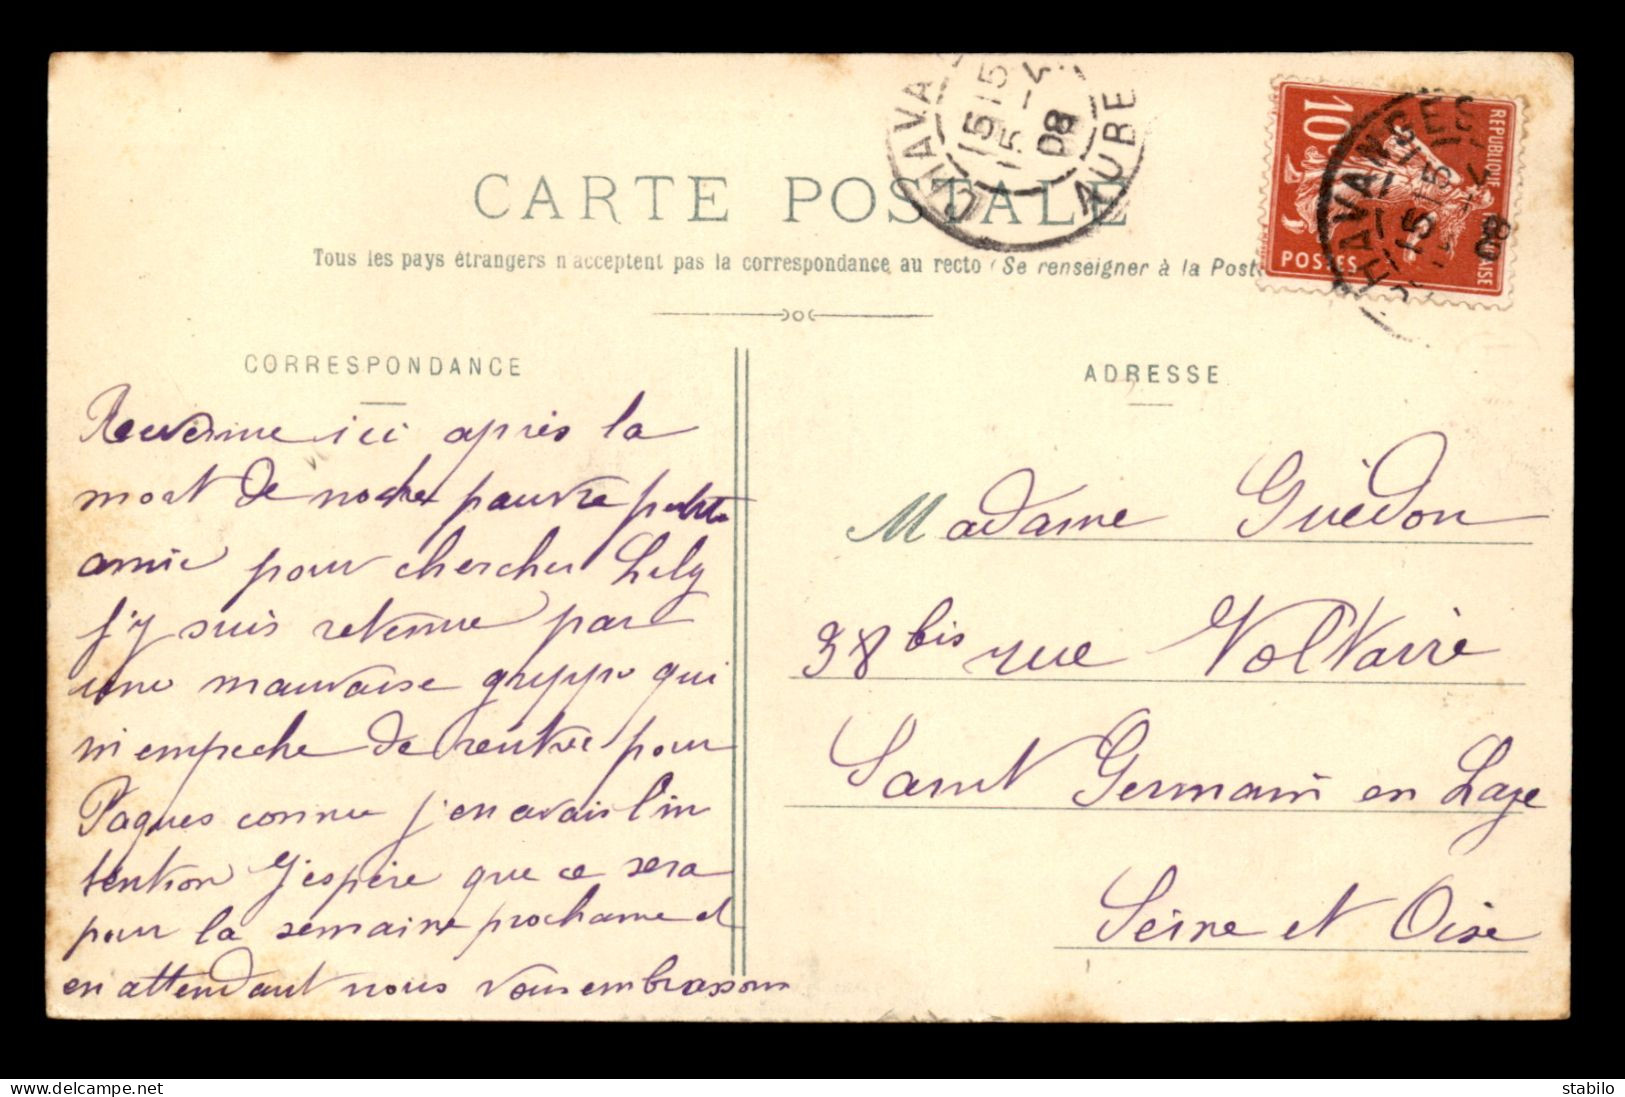 CHAVANGES
15 15
15 -4
08
AUBE
REPUBLIQUE FRANÇAISE
10
POSTES
CHAVANGES
15 15
08
CARTE POSTALE
Tous les pays étrangers n'acceptent pas la correspondance au recto (Se renseigner à la Post
CORRESPONDANCE
ADRESSE
Revenue ici après la
mort de notre pauvre petite
amie pour chercher Lily
j'y suis retenue par
une mauvaise grippe qui
m'empeche de rentrer pour
Paques comme j'en avais l'in
tention J'espère que ce sera
pour la semaine prochaine et
en attendant nous vous embrassons
Madame Guédon
38 bis rue Voltaire
Saint Germain en Laye
Seine et Oise
stabilo
www.delcampe.net